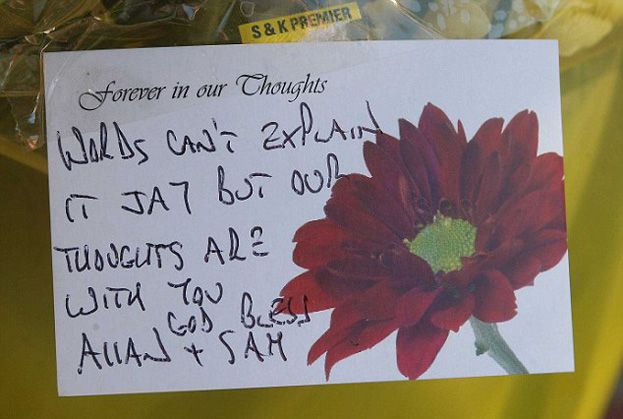 S & K PREMIER
Forever in our Thoughts
WORDS CAN'T EXPLAIN
IT JAY BUT OUR
THOUGHTS ARE
WITH YOU
GOD BLESS
ALLAN + SAM